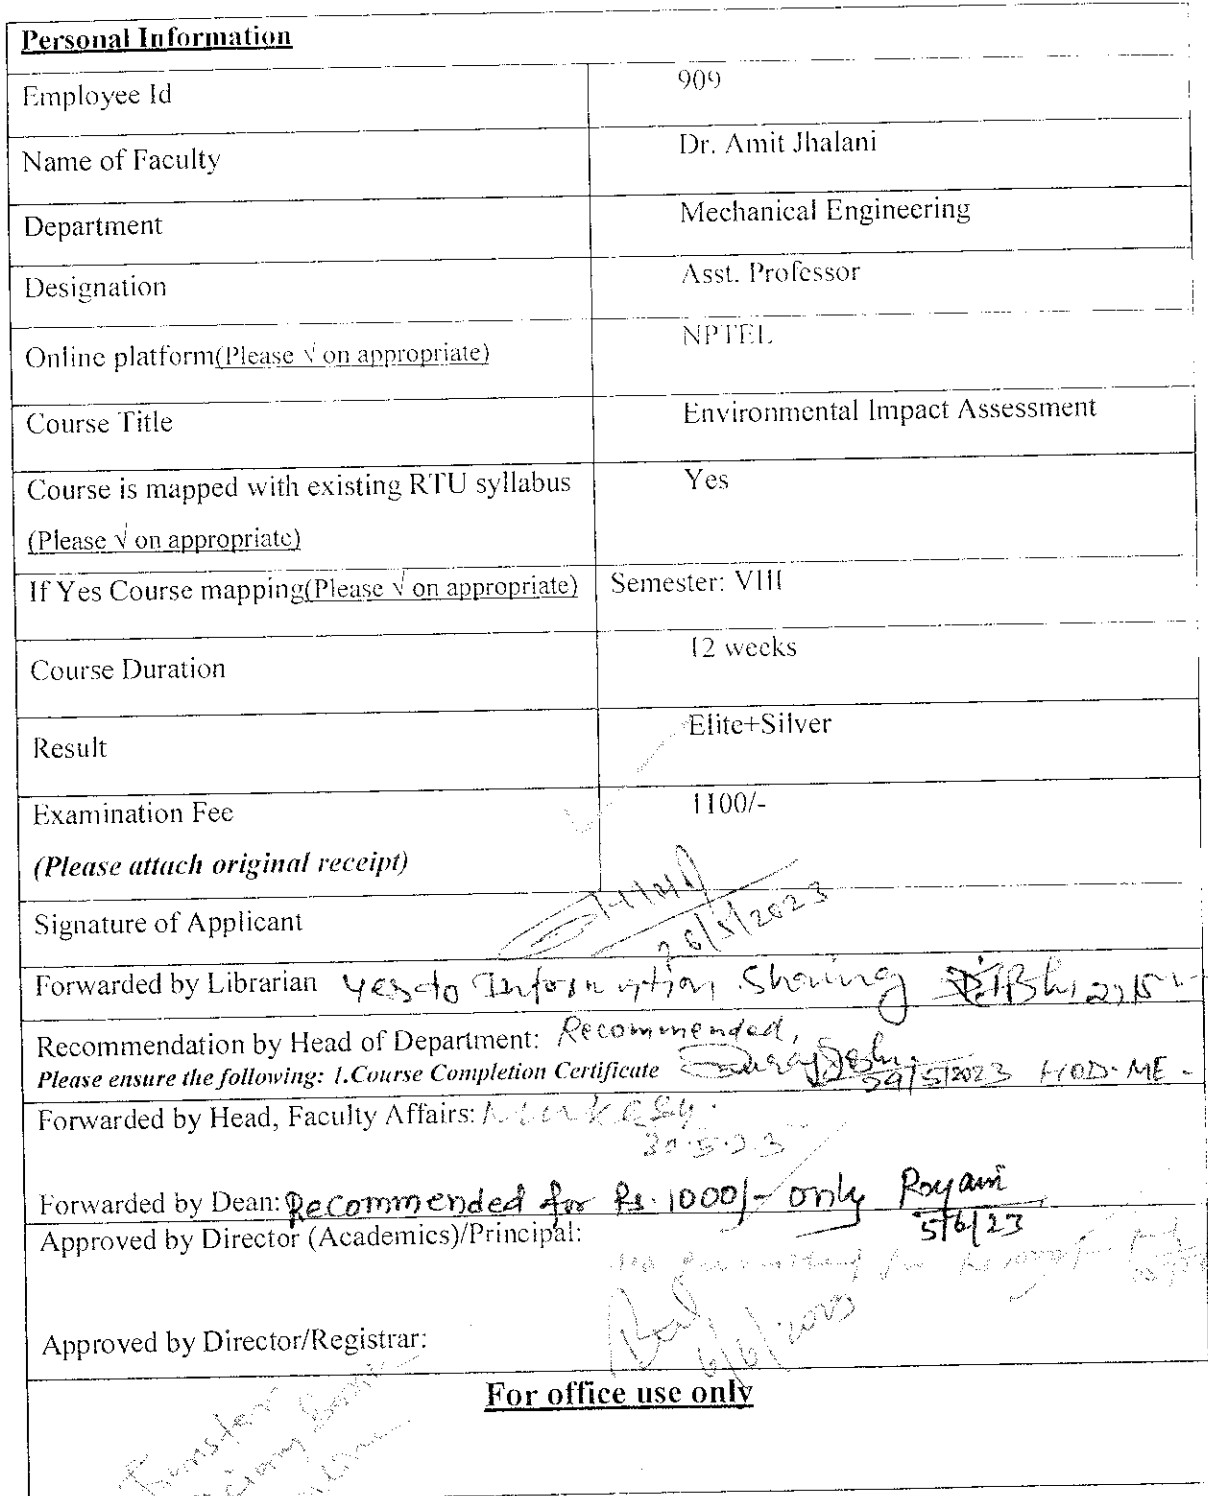 Personal Information
Employee Id 909
Name of Faculty Dr. Amit Jhalani
Department Mechanical Engineering
Designation Asst. Professor
Online platform(Please √ on appropriate) NPTEL
Course Title Environmental Impact Assessment
Course is mapped with existing RTU syllabus Yes
(Please √ on appropriate)
If Yes Course mapping(Please √ on appropriate) Semester: VIII
Course Duration 12 weeks
Result Elite+Silver
Examination Fee 1100/-
(Please attach original receipt)
Signature of Applicant 26/5/2023
Forwarded by Librarian Yes to Information Sharing
Recommendation by Head of Department: Recommended,
Please ensure the following: 1.Course Completion Certificate 29/5/2023 HOD-ME
Forwarded by Head, Faculty Affairs:
30.5.23
Forwarded by Dean: Recommended for Rs. 1000/- only
5/6/23
Approved by Director (Academics)/Principal:
Approved by Director/Registrar: 6/6/2023
For office use only